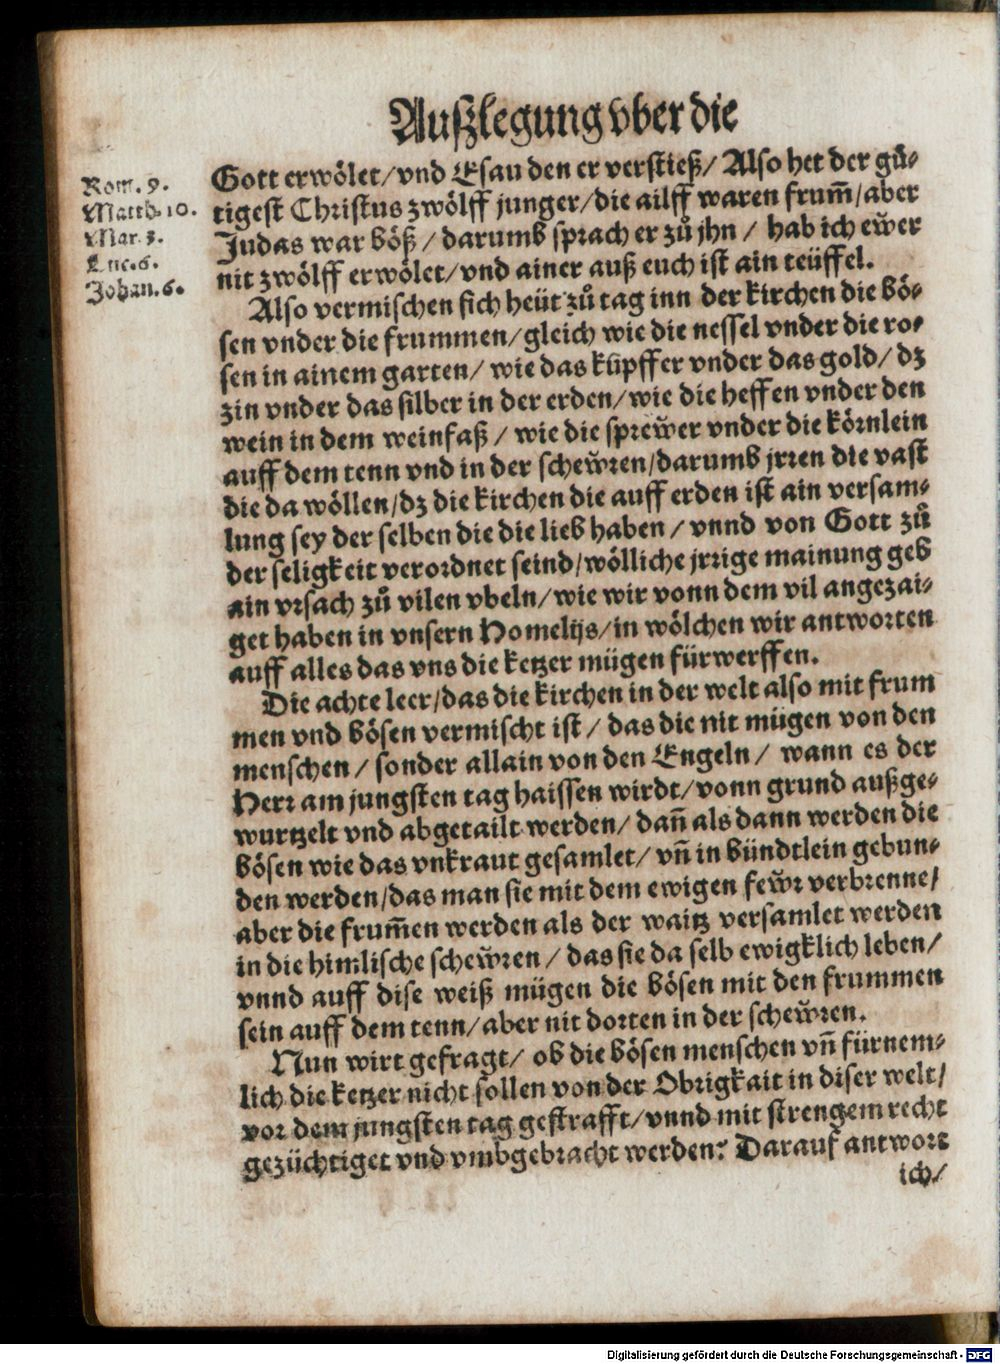 Außlegung vber die
Rom. 9.
Matth. 10.
Mar. 3.
Luc. 6.
Johan. 6.
Gott erwölet/vnd Esau den er verstieß/ Also het der gü-
tigest Christus zwölff junger/die ailff waren frum̃/aber
Judas war böß/ darumb sprach er zů jhn/ hab ich ewer
nit zwölff erwölet/vnd ainer auß euch ist ain teüffel.
Also vermischen sich heüt zů tag inn der kirchen die bö-
sen vnder die frummen/gleich wie die nessel vnder die ro-
sen in ainem garten/ wie das küpffer vnder das gold/ dz
zin vnder das silber in der erden/wie die heffen vnder den
wein in dem weinfaß/ wie die sprewer vnder die körnlein
auff dem tenn vnd in der schewren/darumb jrren die vast
die da wöllen/dz die kirchen die auff erden ist ain versam-
lung sey der selben die die lieb haben/ vnnd von Gott zů
der seligkeit verordnet seind/wölliche jrrige mainung geb
ain vrsach zů vilen vbeln/wie wir vonn dem vil angezai-
get haben in vnsern Homelijs/in wölchen wir antworten
auff alles das vns die ketzer mügen fürwerffen.
Die achte leer/das die kirchen in der welt also mit frum
men vnd bösen vermischt ist/ das die nit mügen von den
menschen/ sonder allain von den Engeln/ wann es der
Herr am jungsten tag haissen wirdt/vonn grund außge-
wurtzelt vnd abgetailt werden/ dañ als dann werden die
bösen wie das vnkraut gesamlet/ vñ in bündtlein gebun-
den werden/das man sie mit dem ewigen fewr verbrenne/
aber die frum̃en werden als der waitz versamlet werden
in die himlische schewren/ das sie da selb ewigklich leben/
vnnd auff dise weiß mügen die bösen mit den frummen
sein auff dem tenn/aber nit dorten in der schewren.
Nun wirt gefragt/ ob die bösen menschen vñ fürnem-
lich die ketzer nicht sollen von der Obrigkait in diser welt/
vor dem jungsten tag gestrafft/vnnd mit strengem recht
gezüchtiget vnd vmbgebracht werden? Darauf antwort
ich/
Digitalisierung gefördert durch die Deutsche Forschungsgemeinschaft - DFG